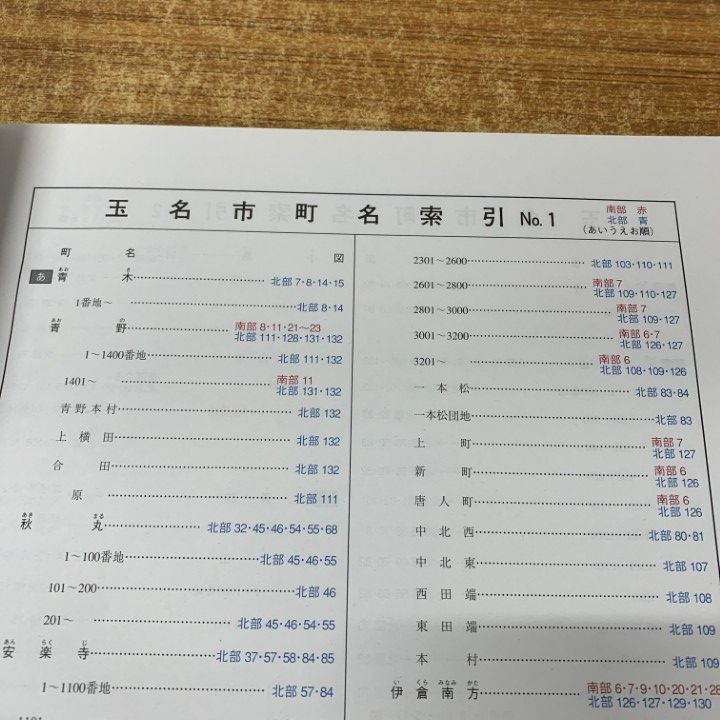 玉名市町名索引 No.1
南部 赤
北部 青
(あいうえお順)
町名 図
あ 青木 あおき 北部 7・8・14・15
1番地～ 北部 8・14
青野 あおの 南部 8・11・21～23
北部 111・128・131・132
1～1400番地 北部 111・132
1401～ 南部 11
北部 131・132
青野本村 北部 132
上横田 北部 132
合田 北部 132
原 北部 111
秋丸 あきまる 北部 32・45・46・54・55・68
1～100番地 北部 45・46・55
101～200 北部 46
201～ 北部 45・46・54・55
安楽寺 あんらくじ 北部 37・57・58・84・85
1～1100番地 北部 57・84
2301～2600 北部 103・110・111
2601～2800 南部 7
北部 109・110・127
2801～3000 南部 7
北部 109・127
3001～3200 南部 6・7
北部 126・127
3201～ 南部 6
北部 108・109・126
一本松 北部 83・84
一本松団地 北部 83
上町 南部 7
北部 127
新町 南部 6
北部 126
唐人町 南部 6
北部 126
中北西 北部 80・81
中北東 北部 107
西田端 北部 108
東田端 北部 109
本村 北部 109
伊倉南方 いくらみなみかた 南部 6・7・9・10・20・21・28
北部 126・127・129・130